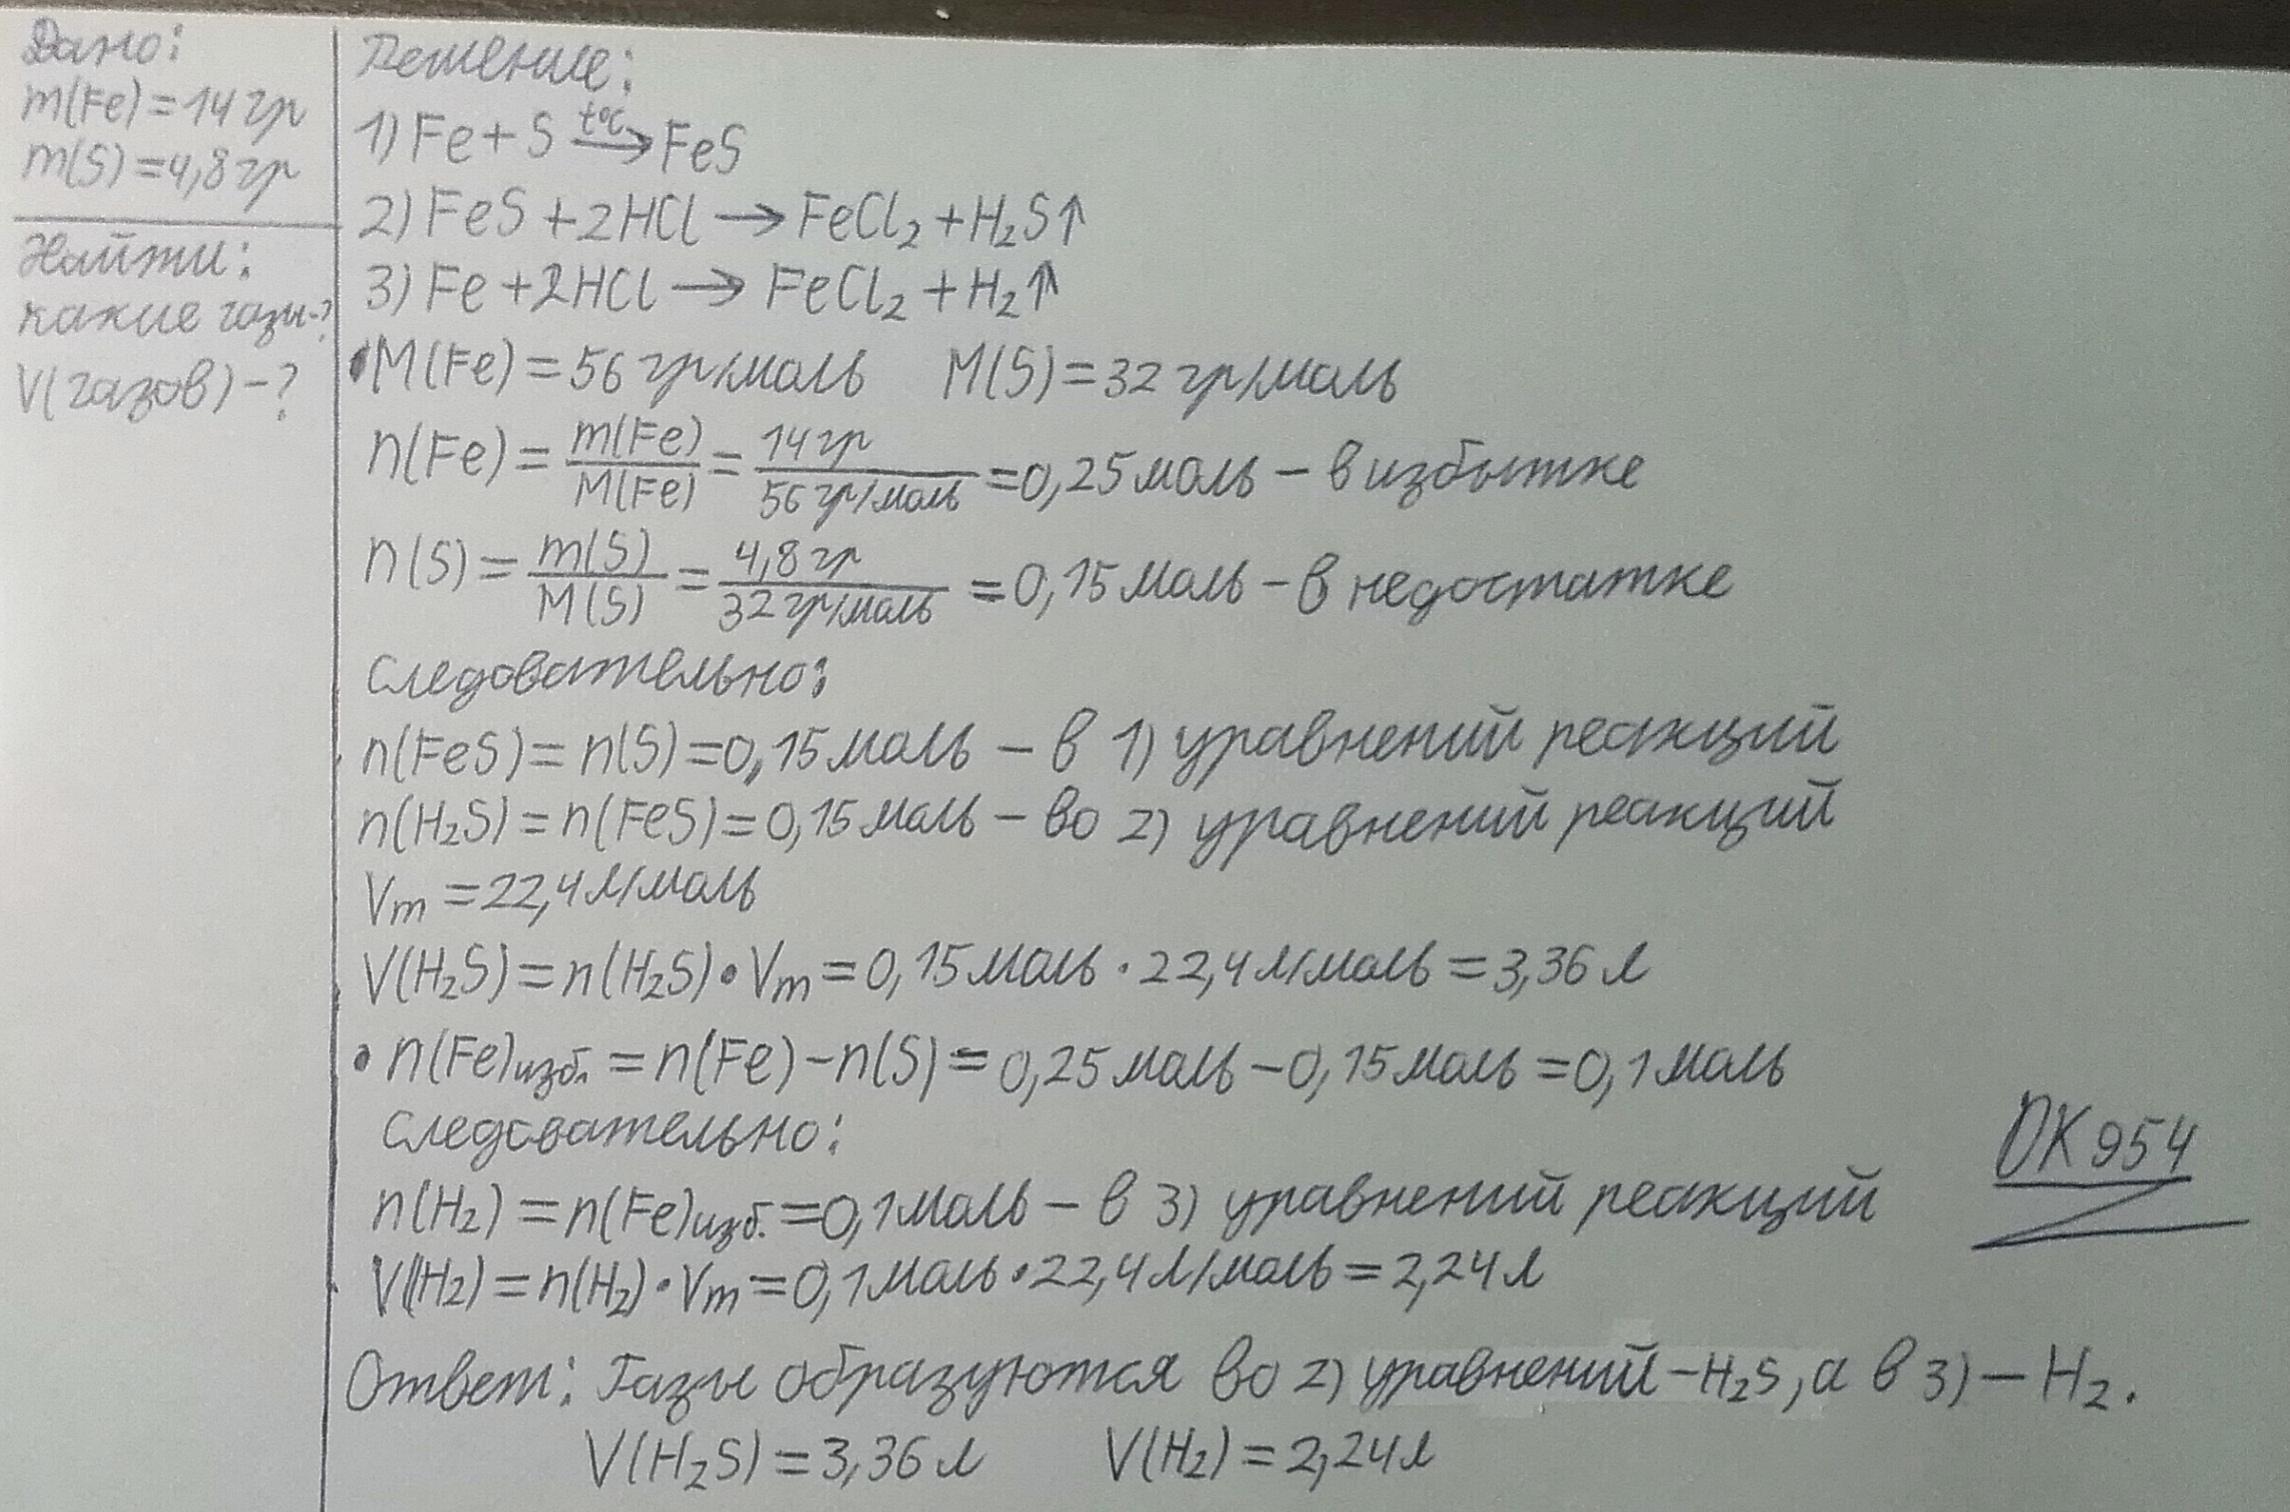 Дано:
m(Fe)=14 гр
m(S)=4,8 гр
Найти:
какие газы-?
V(газов)-?
Решение:
1) Fe + S t°C → FeS
2) FeS + 2HCl → FeCl₂ + H₂S↑
3) Fe + 2HCl → FeCl₂ + H₂↑
•M(Fe)=56 гр/моль M(S)=32 гр/моль
n(Fe) = m(Fe)/M(Fe) = 14 гр/56 гр/моль = 0,25 моль - в избытке
n(S) = m(S)/M(S) = 4,8 гр/32 гр/моль = 0,15 моль - в недостатке
Следовательно:
n(FeS) = n(S) = 0,15 моль - в 1) уравнений реакций
n(H₂S) = n(FeS) = 0,15 моль - во 2) уравнений реакций
Vm = 22,4 л/моль
V(H₂S) = n(H₂S) • Vm = 0,15 моль · 22,4 л/моль = 3,36 л
• n(Fe)изб. = n(Fe) - n(S) = 0,25 моль - 0,15 моль = 0,1 моль
Следовательно:
n(H₂) = n(Fe)изб. = 0,1 моль - в 3) уравнений реакций
V(H₂) = n(H₂) • Vm = 0,1 моль • 22,4 л/моль = 2,24 л
Ответ: Газы образуются во 2) уравнений - H₂S, а в 3) - H₂.
V(H₂S) = 3,36 л V(H₂) = 2,24 л
DK954